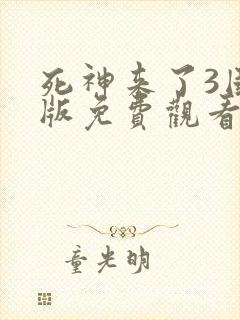 死神来了3国
版免費觀看
童光明